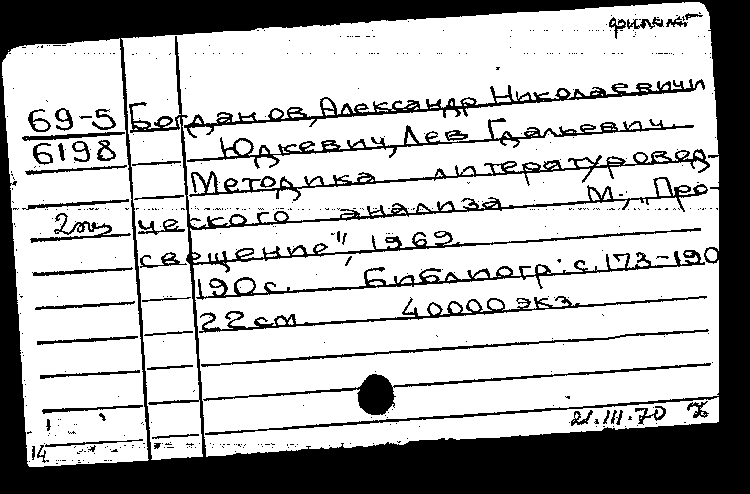 филолог
69-5 Богданов, Александр Николаевич и
6198 Юдкевич, Лев Гдальевич.
Методика литературовед-
2экз ческого анализа. М., „Про-
свещение", 1969.
190 с. Библиогр: с. 173-190
22 см. 40000 экз.
21.III.70
14